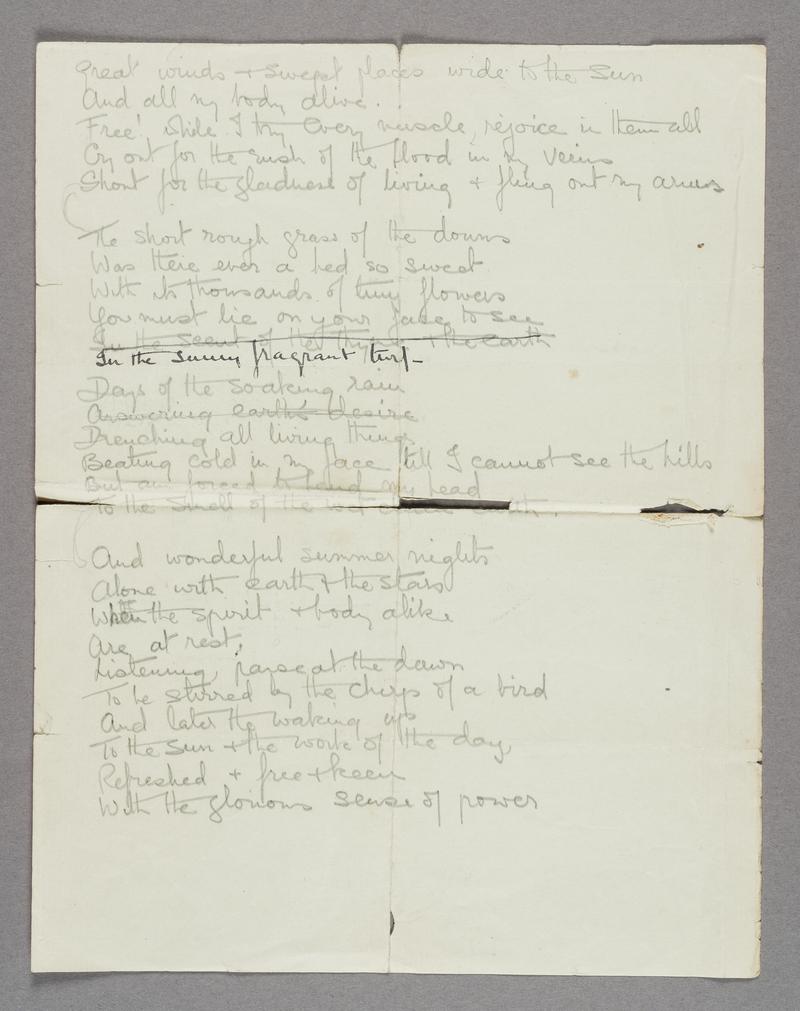 Great winds + swept places wide to the Sun
And all my body alive.
Free! while I try every muscle, rejoice in them all
Cry out for the rush of the flood in my veins
Shout for the gladness of living + fling out my arms
The short rough grass of the downs
Was there ever a bed so sweet
With its thousands of tiny flowers
You must lie on your face to see
In the scent of the thyme + the earth
In the sunny fragrant turf—
Days of the soaking rain
Answering earth's desire
Drenching all living things
Beating cold in my face till I cannot see the hills
But am forced to bend my head
To the smell of the wet earth.
And wonderful summer nights
Alone with earth + the stars
When the spirit + body alike
Are at rest,
Listening, at the dawn
To be stirred by the chirp of a bird
And later the waking up
To the sun + the work of the day,
Refreshed + free + keen
With the glorious sense of power